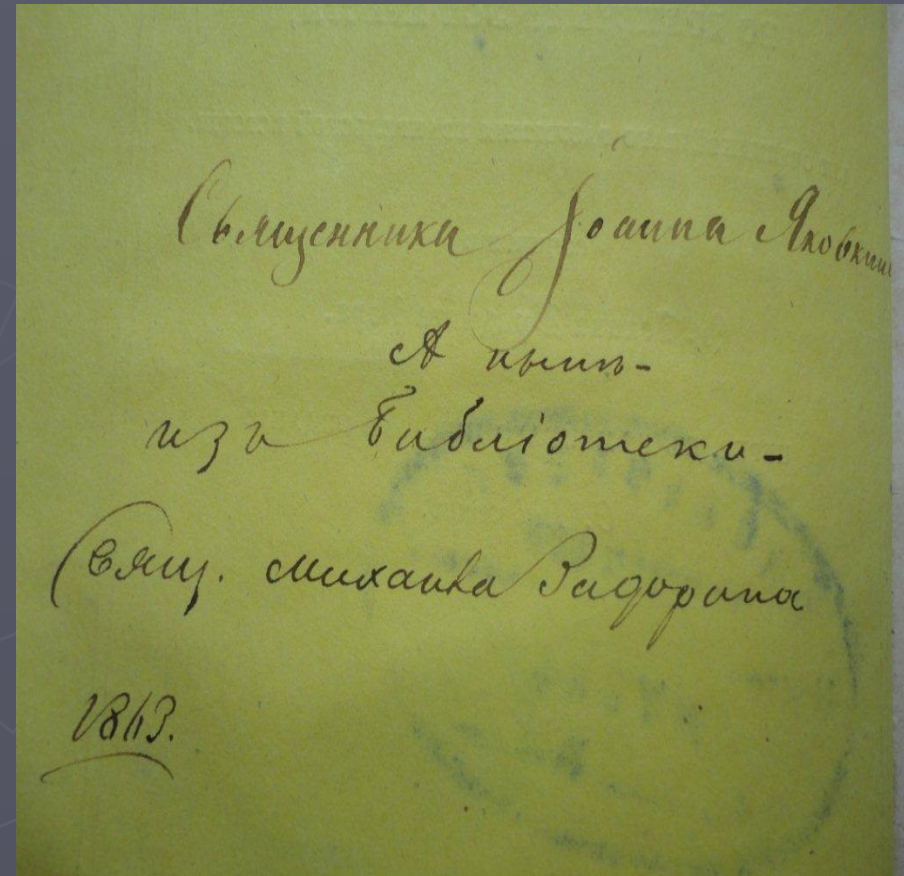 Священника Іоанна Яковкин
А нынѣ-
изъ Библіотеки-
Свящ. Михаила Задорина
1863.